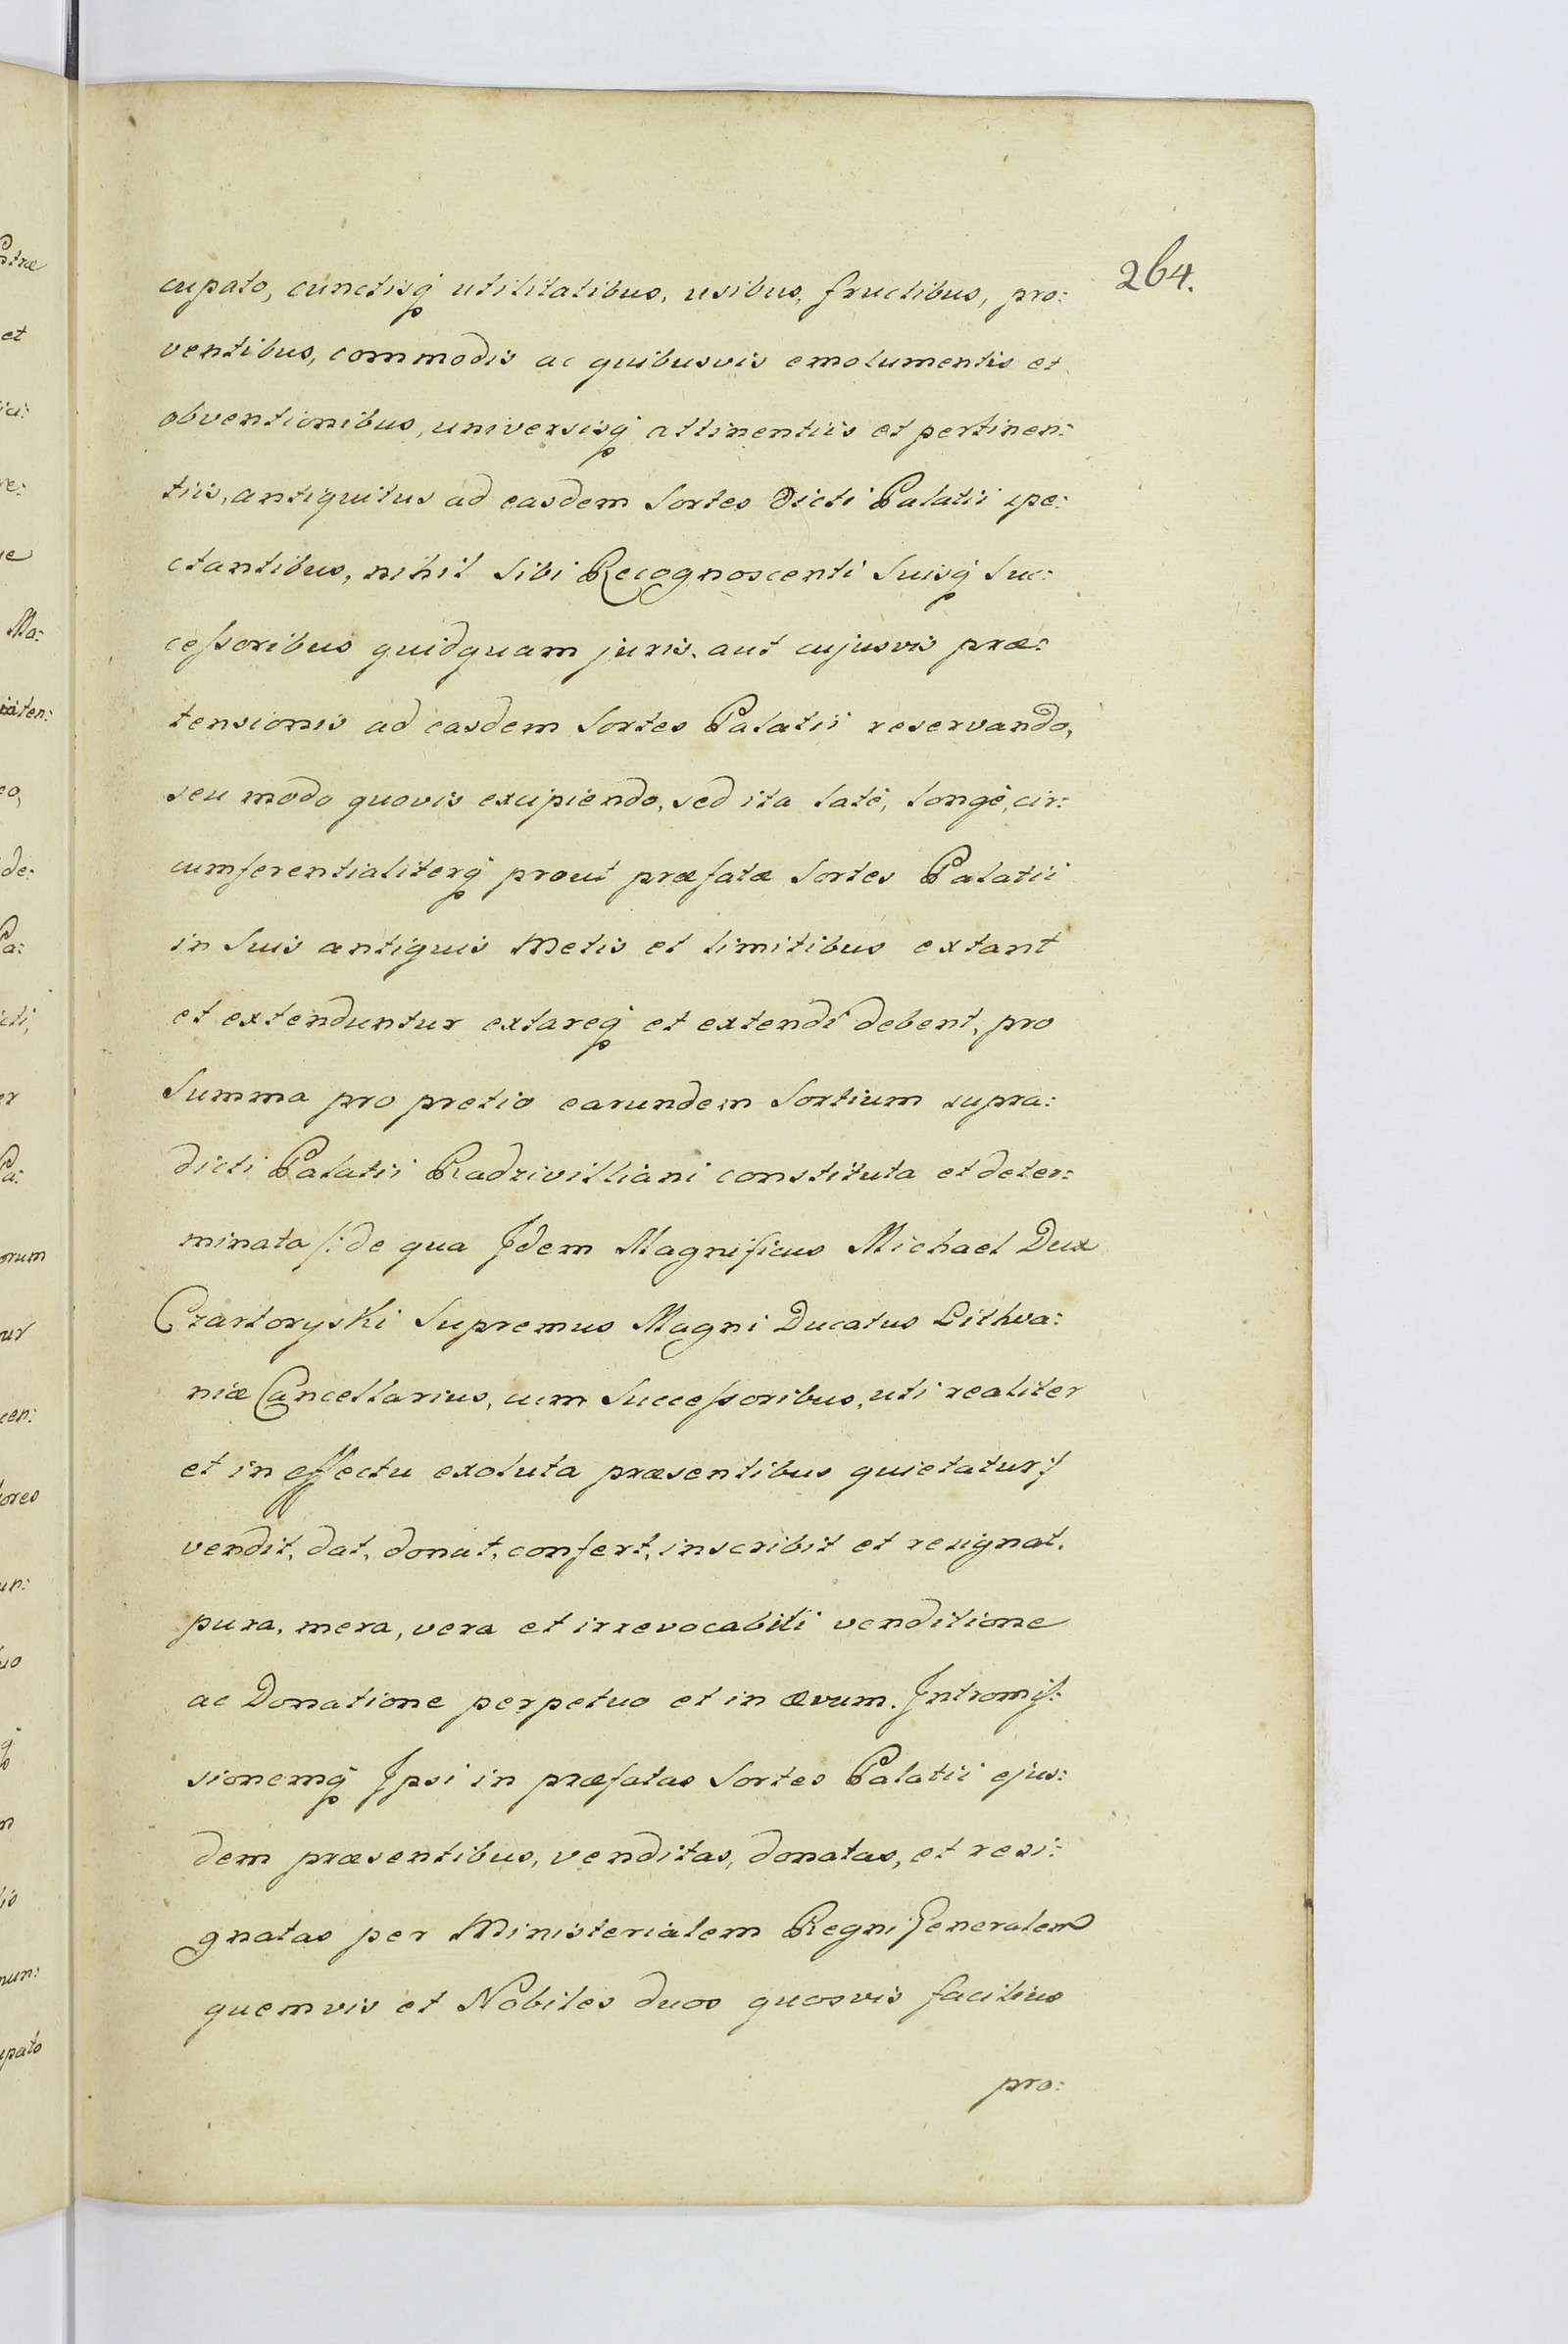 264.
cupato, cunctisq̃ utilitatibus, usibus, fructibus, pro:
ventibus, commodis ac quibusvis emolumentis et
obventionibus, universisq̃ attinentiis et pertinen:
tiis, antiquitus ad easdem Sortes Dicti Palatii spe:
ctantibus, nihil Sibi Recognoscenti Suisq̃ Suc:
cessoribus quidquam juris, aut cujusvis præ:
tensionis ad easdem Sortes Palatii reservando,
seu modo quovis excipiendo, sed ita latè, longè, cir:
cumferentialiterq̃ prout præfatæ Sortes Palatii
in Suis antiquis Metis et limitibus extant
et extenduntur extareq̃ et extendi debent, pro
Summa pro pretio earundem Sortium supra:
dicti Palatii Radzivilliani constituta et deter:
minata /: de qua Idem Magnificus Michael Dux
Czartoryski Supremus Magni Ducatus Lithva:
niæ Cancellarius, cum Successoribus, uti realiter
et in effectu exoluta præsentibus quietatur :/
vendit, dat, donat, confert, inscribit et resignat,
pura, mera, vera et irrevocabili venditione
ac Donatione perpetuo et in ævum. Intromis:
sionemq̃ Ipsi in præfatas Sortes Palatii ejus:
dem præsentibus, venditas, donatas, et resi:
gnatas per Ministerialem Regni Generalem
quemvis et Nobiles duos quosvis facilius
pro: